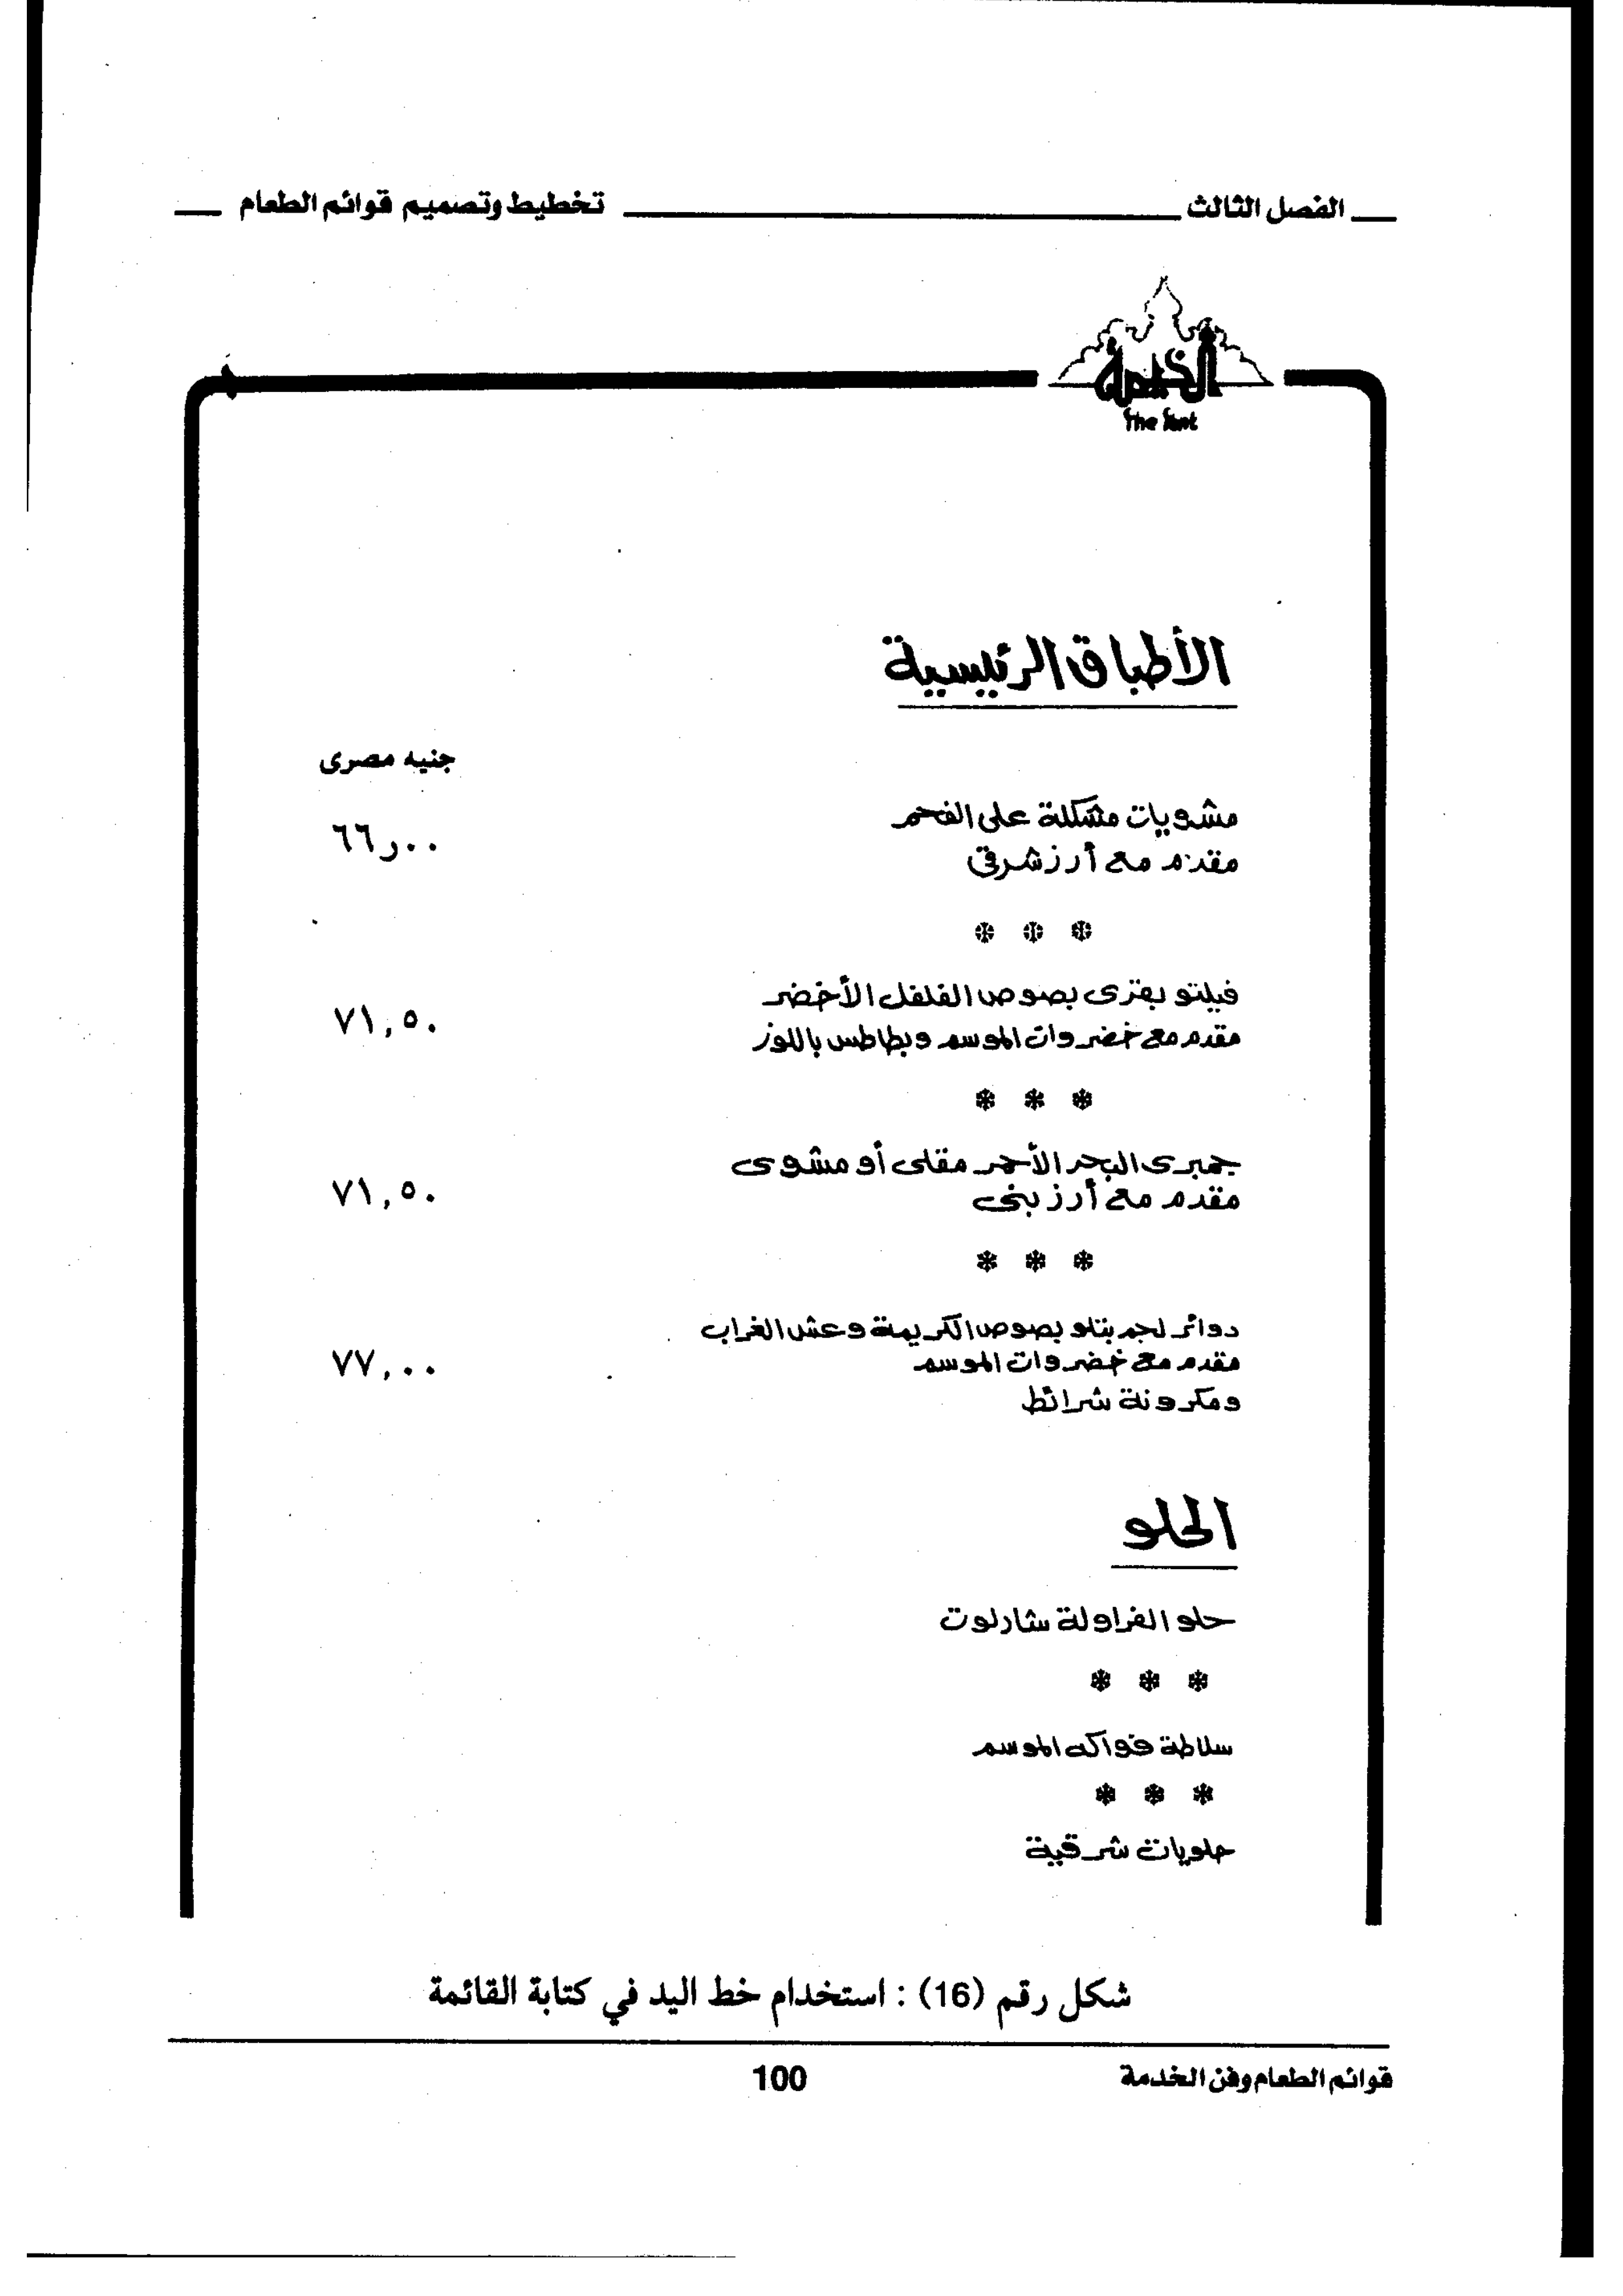 الفصل الثالث
تخطيط وتصميم قوائم الطعام
الخيمة
The Tent
الأطباق الرئيسية
جنيه مصرى
مشويات مشكلة على الفحم
٦٦ر٠٠
مقدم مع أرز شرقى
فيلتو بقرى بصوص الفلفل الأخضر
٧١,٥٠
مقدم مع خضروات الموسم وبطاطس باللوز
جمبرى البحر الأحمر مقلى أو مشوى
٧١,٥٠
مقدم مع أرز بنى
دوائر لحم بتلو بصوص الكريمة وعش الغراب
٧٧,٠٠
مقدم مع خضروات الموسم
ومكرونة شرائط
الحلو
حلو الفراولة شارلوت
سلاطة فواكه الموسم
حلويات شرقية
شكل رقم (16) : استخدام خط اليد في كتابة القائمة
قوائم الطعام وفن الخدمة
100